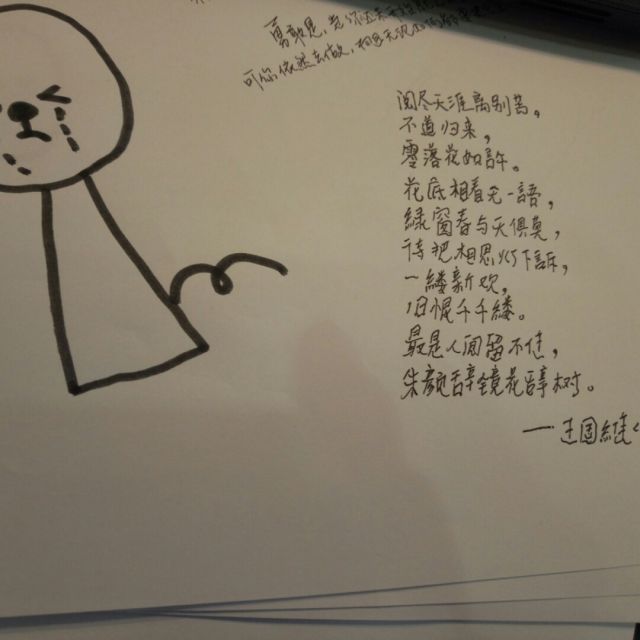 勇敢是,当你还未开始
可你依然去做,
阅尽天涯离别苦,
不道归来,
零落花如許。
花底相看无一語,
緑窗春与天俱莫,
待把相思灯下訴,
一縷新欢,
旧恨千千縷。
最是人间留不住,
朱颜辞镜花辞树。
—王国維